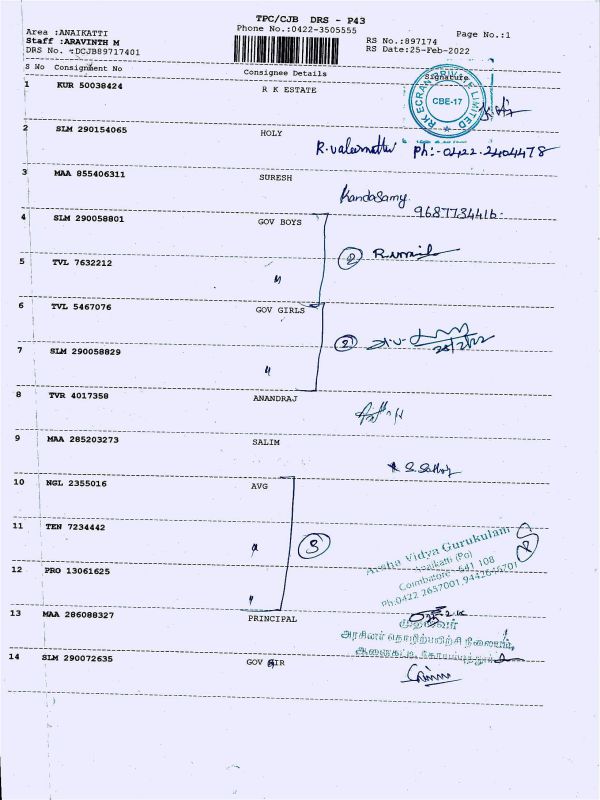 TPC/CJB DRS - P43
Phone No.:0422-3505555
Area :ANAIKATTI
Staff :ARAVINTH M
DRS No. :DCJB89717401
RS No.:897174 Page No.:1
RS Date:25-Feb-2022
S No Consignment No Consignee Details Signature
RK ECRAN PRIVATE LIMITED
CBE-17
1 KUR 50038424 R K ESTATE
2 SLM 290154065 HOLY Ph:-0422.2404478
3 MAA 855406311 SURESH Kandasamy
9687734416
4 SLM 290058801 GOV BOYS
2
5 TVL 7632212 "
6 TVL 5467076 GOV GIRLS
2
7 SLM 290058829 "
8 TVR 4017358 ANANDRAJ
9 MAA 285203273 SALIM
10 NGL 2355016 AVG
11 TEN 7234442 "
3
Arsha Vidya Gurukulam
Anaikatti (Po)
Coimbatore - 641 108
12 PRO 13061625 "
13 MAA 286088327 PRINCIPAL
முதல்வர்
அரசினர் தொழிற்பயிற்சி நிலையம்,
ஆனைகட்டி, கோயம்புத்தூர்
14 SLM 290072635 GOV GIR